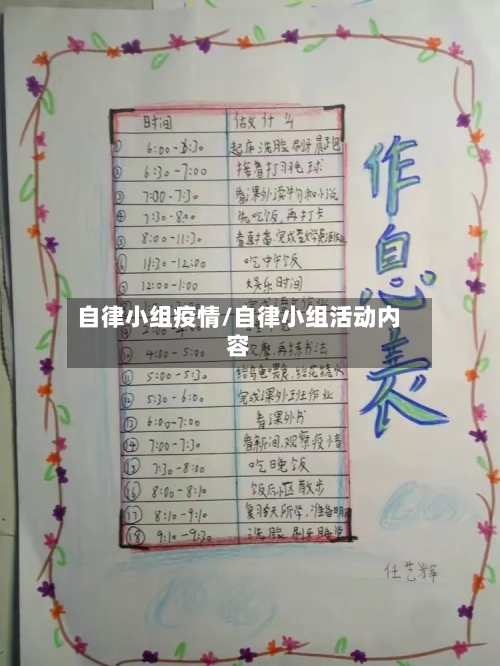 作息表
时间 做什么
① 6:00-6:30 起床 洗脸 刷牙
② 6:30-7:00 接着打羽毛球
③ 7:00-7:30 看课外读物和小说
④ 7:30-8:00 先吃饭,再打卡
⑤ 8:00-11:30 看直播,完成
⑥ 11:30-12:00 吃中午饭
⑦ 12:00-1:00 娱乐时间
自律小组疫情/自律小组活动内
容
4:00-5:00 再练书法
⑪ 5:00-5:30 给乌龟喂食,给花浇水
⑫ 5:30-6:00 完成课外班作业
⑬ 6:00-7:00 看课外书
⑭ 7:00-7:30 看新闻,观察疫情
⑮ 7:30-8:00 吃晚饭
⑯ 8:00-8:10 饭后小区散步
⑰ 8:10-9:10 复习今天所学,准备明
⑱ 9:10-9:30 洗脸 刷牙 睡觉
任艺辉